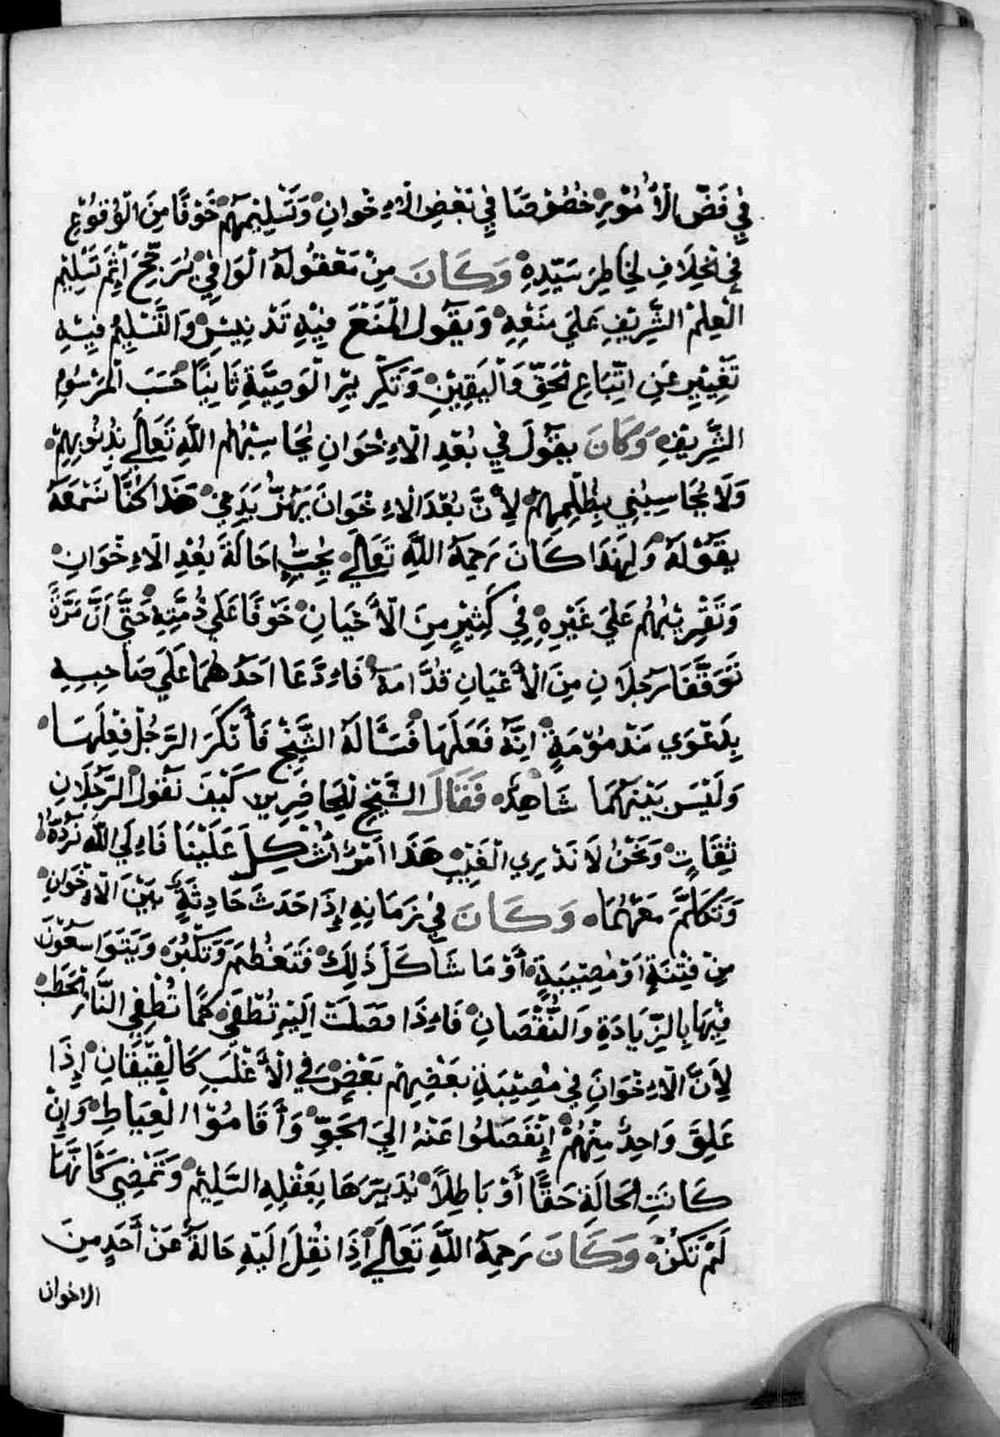 في فَضّ الأُمُورِ خُصُوْصًا فِي بَعْضِ الاِخْوانِ وَتَسْلِيْمِهِمْ خَوْفًا مِنَ الْوُقوُعِ
في خِلَافِ لِخَاطِرِ سَيِّدِهِ وَكَانَ مِنْ مَعْقُولَهُ الْوَافِي يُرَجِّحَ تَسْلِيْم
الْعِلِمْ الشَّرِيْفِ عَلَي مَنَعْهِ وَيَقُول الْمَنَعَ فِيْهِ تَدْنِيسٌ وَالتَّسْلِيْمُ فِيْهِ
تَغْيِيْرٍ عَنِ اتِّبَاعِ الحَقِّ وَالْيَقِيْنِ وَتَكْرِيْرِ الْوَصِيَّةِ ثَانِيًا حَسَبَ الْمَرْسُوْمِ
الشَّرِيْفِ وَكَانَ يَقُوْلَ فِي بُعْدِ الْاِخْوَانِ يُحَاسِبْهُم اللهِ تَعَالَي بِذُنُوْبِهِمْ
وَلَا يُحَاسِبُنِي بِظُلْمِهِمْ لِأَنَّ بُعْدَ الْاِخْوَانَ يَهُزُّ بَدَنِي هَذَا كُنَّا نَسْمَعَهُ
يِقَوْلَهُ وَلِهَذَا كَانَ رَحِمَهُ اللهِ تَعَالَي يُحِبُّ اِحَالَةَ بُعْدِ الْاِخْوَانِ
وَتَقْرِيْبُهُمْ عَلَي غَيْرِهِ فِي كَثِيْرٍ مِنَ الْأَحْيَانِ خَوْفًا عَلَي ذِمَّتِهِ حَتَّي اَنَّ مَرَّةً
تَوَقَّفَا رَجُلَانِ مِنَ الْأَعْيَانِ قُدَّامَهُ فَاِدَّعَا اَحَدُهُمَا عَلَي صَاحِبِهِ
بِدَعْوَي مَذْمُوْمَةٍ اِنَّهُ فَعَلَهَا فَسَأَلَهُ الشَّيْخِ فَأَنْكَرَ الرَّجُلْ فِعْلَهَا
وَلَيْسَ بَيْنَهُمَا شَاهِدٌ فَقَالَ الشَّيْخِ لِلْحَاضِرِينَ كَيْفَ نَقُولْ الرَّجُلَانِ
ثِقَاتٍ وَنَحْنُ لَا نَدْرِي الْغَيْبِ هَذَا اَمْرٌ أُشْكِلَ عَلَيْنَا فَاِلَي اللهِ نَرُدَّهُ
وَنَتَكَلَّمَ مَعْهُمَا وَكَانَ فِي زَمَانِهِ اِذَا حَدَثَ حَادِثَةٍ بَيْنَ الْاِخْوَانِ
مِنْ فِتْنَةٍ اَوْ مُصِيْبَةٍ أَوْ مَا شَاكَلَ ذَلِكَ فَتَعْظُمَ وَتَكْبُرَ وَيَتَوَاسَعُوْنَ
فِيْهَا بِالزِّيَادَةِ وَالنُّقْصَانِ فَاِذَا وَصَلَتْ اِلَيْهِ تُطْفَي كَمَا تُطْفِي النَّار الحَطَب
لِأَنَّ الْاِخْوَانَ فِي مُصِيْبَةِ بَعْضِهِمْ بَعْضٍ فِي الْأَغْلَبِ كَالْقِيْقَانِ اِذَا
عَلِقَ وَاحِدٌ مِنْهُمْ اِنْفَصَلُوا عَنْهُ اِلَي الجَوِّ وَأَقَامُوْا الْعِيَاطِ وَاِنْ
كَانَتِ الحَالَةِ حَقًّا أَوْ بَاطِلًا يُدَبِّرَهَا بِعَقْلِهِ السَّلِيْمْ وَتَمْضِي كَأَنَّهَا
لَمْ تَكُنْ وَكَانَ رَحِمَهُ اللهِ تَعَالَي اِذَا نُقِلَ اِلَيْهِ حَالَةٌ عَنْ أَحَدٍ مِنَ
الاخوان